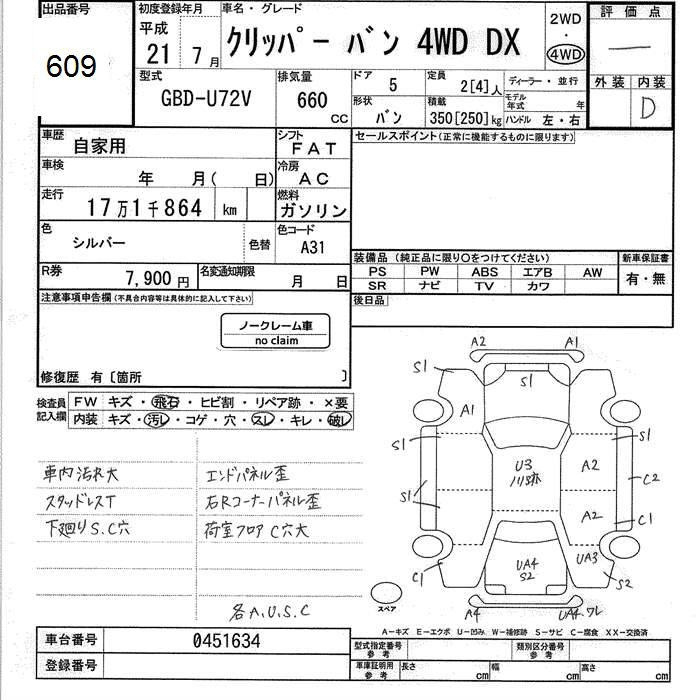 出品番号
609
初度登録年月
平成
21 7月
車名・グレード
クリッパー バン 4WD DX
2WD
・
4WD
評価点
―
外装 内装
D
型式
GBD-U72V
排気量
660
CC
ドア
5
定員
2[4]人
ディーラー・並行
形状
バン
積載
350[250]kg
モデル年式 年
ハンドル 左・右
車歴
自家用
シフト
FAT
セールスポイント(正常に機能するものに限ります)
車検
年 月( 日)
冷房
AC
走行
17万1千864 km
燃料
ガソリン
色
シルバー
色替
色コード
A31
装備品(純正品に限り○をつけてください)
新車保証書
PS PW ABS エアB AW
有・無
SR ナビ TV カワ
R券
7,900円
名変通知期限
月 日
後日品
注意事項申告欄(不具合内容等は具体的に記入して下さい)
ノークレーム車
no claim
修復歴 有〔箇所 〕
検査員
記入欄
FW キズ・飛石・ヒビ割・リペア跡・×要
内装 キズ・汚レ・コゲ・穴・スレ・キレ・破レ
車内汚れ大 エンドパネル歪
スタッドレスT 右Rコーナーパネル歪
下廻りS.C穴 荷室フロアC穴大
各A.U.S.C
A2 A1
S1 S1 S1
A1
S1 S1
U3
A2
C2
S1
A2 C1
UA4
S2
UA3
C1 S2
スペア
A4 UA4 ワレ
A-キズ E-エクボ U-凹み W-補修跡 S-サビ C-腐食 XX-交換済
車台番号
0451634
登録番号
型式指定番号
参考
類別区分番号
参考
車庫証明用
参考
長さ cm 幅 cm 高さ cm